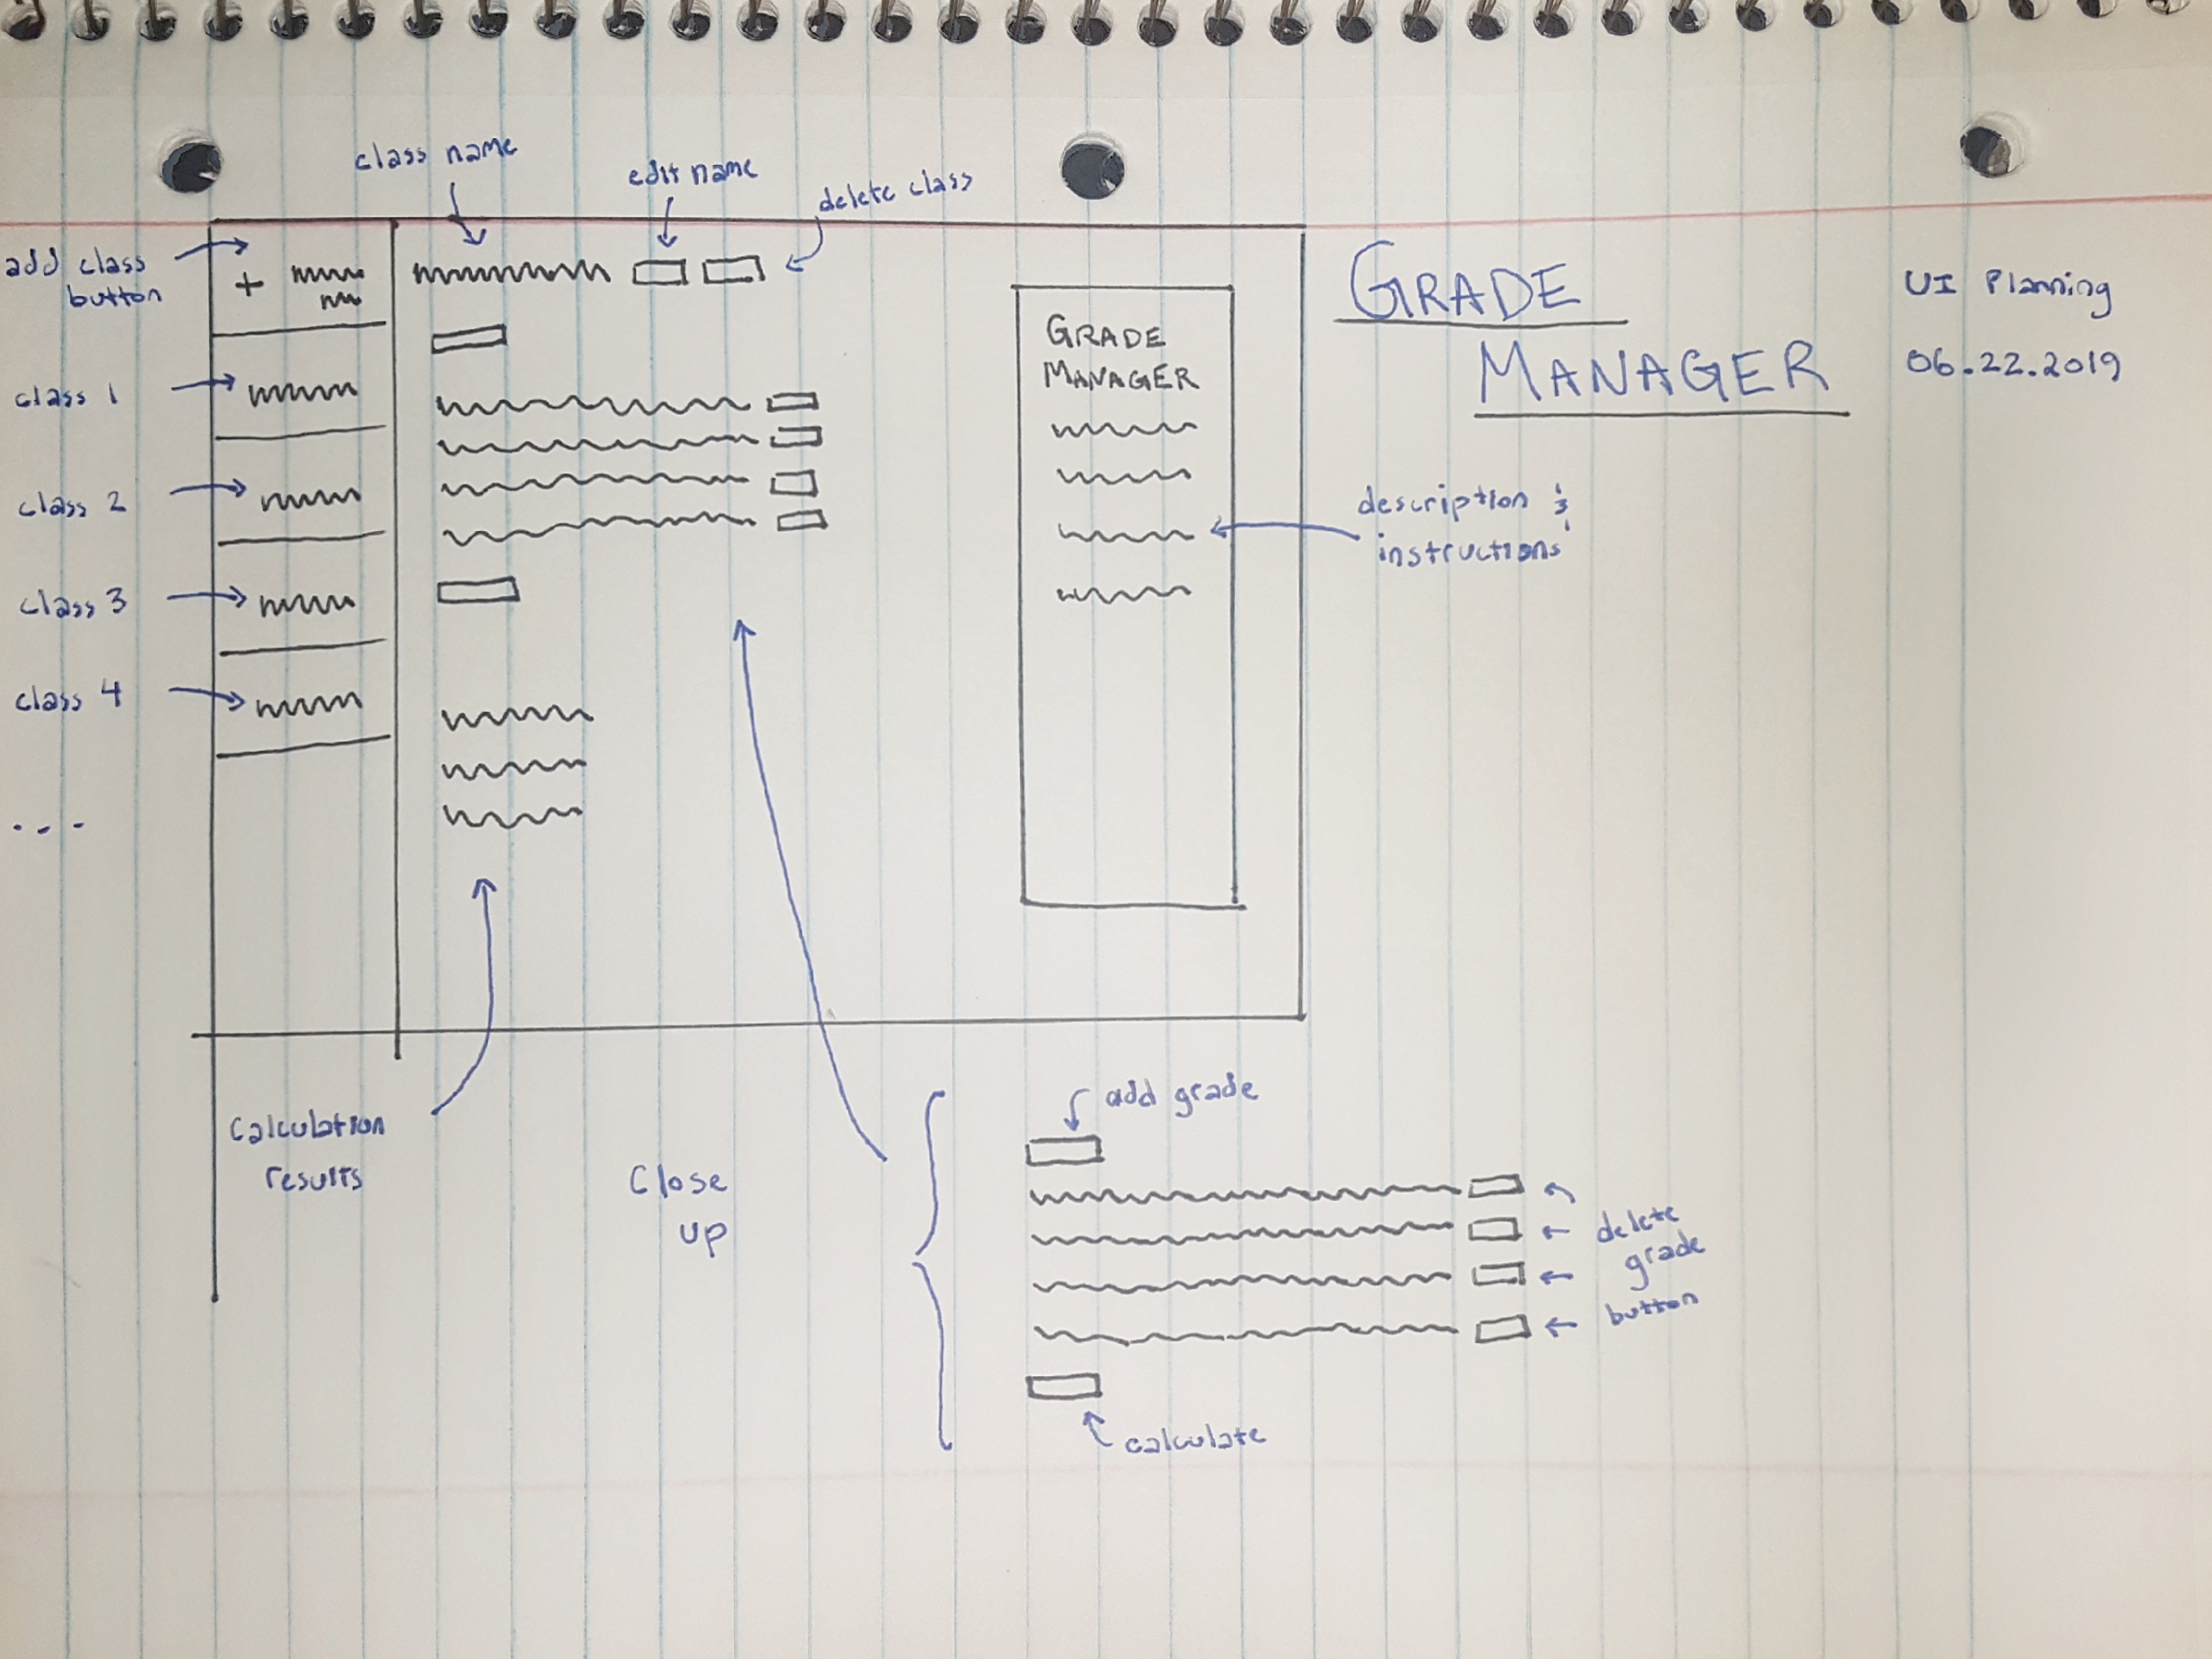 GRADE
MANAGER
UI Planning
06.22.2019
class name
edit name
delete class
add class
button
+
class 1
class 2
class 3
class 4
...
GRADE
MANAGER
description &
instructions
Calculation
results
Close
up
add grade
delete
grade
button
calculate